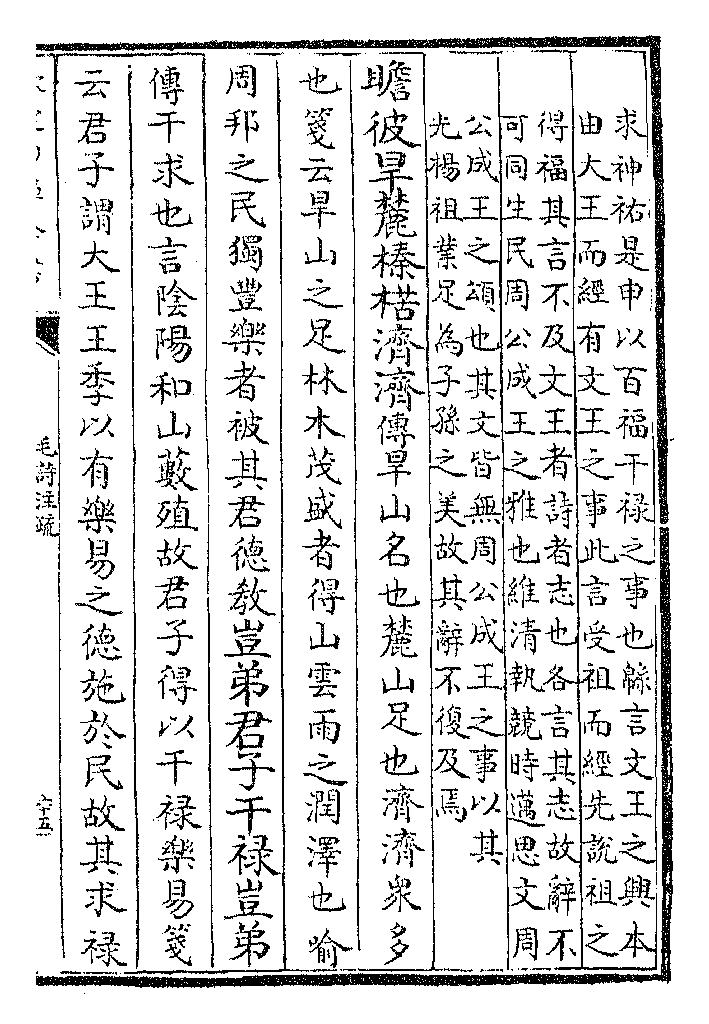 求神祐是申以百福干禄之事也緜言文王之興本
由大王而經有文王之事此言受祖而經先說祖之
得福其言不及文王者詩者志也各言其志故辭不
可同生民周公成王之雅也維清執競時邁思文周
公成王之頌也其文皆無周公成王之事以其
光揚祖業足為子孫之美故其辭不復及焉
瞻彼旱麓榛楛濟濟傳旱山名也麓山足也濟濟衆多
也箋云旱山之足林木茂盛者得山雲雨之潤澤也喻
周邦之民獨豐樂者被其君德敎豈弟君子干禄豈弟
傳干求也言陰陽和山藪殖故君子得以干禄樂易箋
云君子謂大王王季以有樂易之德施於民故其求禄
毛詩注疏
六十五